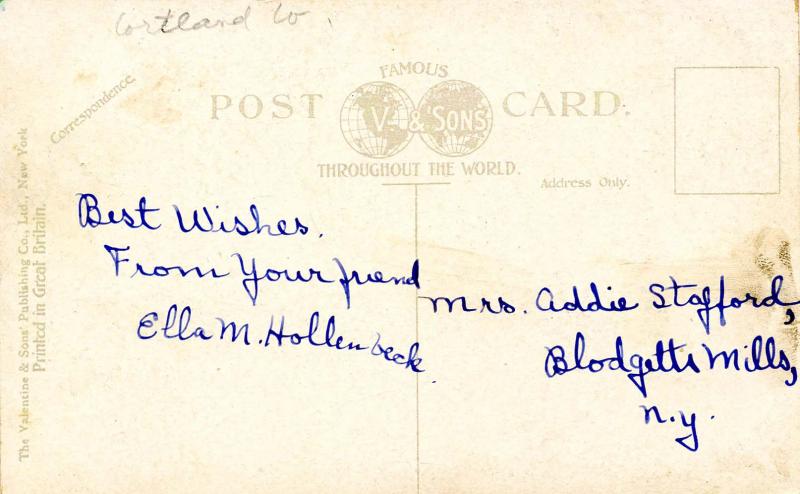 Cortland Co.
Correspondence.
FAMOUS
POST CARD.
V. & SONS
THROUGHOUT THE WORLD.
Address Only.
The Valentine & Sons' Publishing Co., Ltd., New York
Printed in Great Britain.
Best Wishes.
From Your friend
Ella M. Hollenbeck
Mrs. Addie Stafford,
Blodgetts Mills,
N.y.